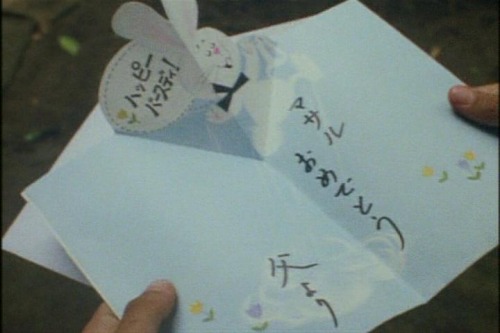 ハッピー
バースディ!
マサル
おめでとう
天より